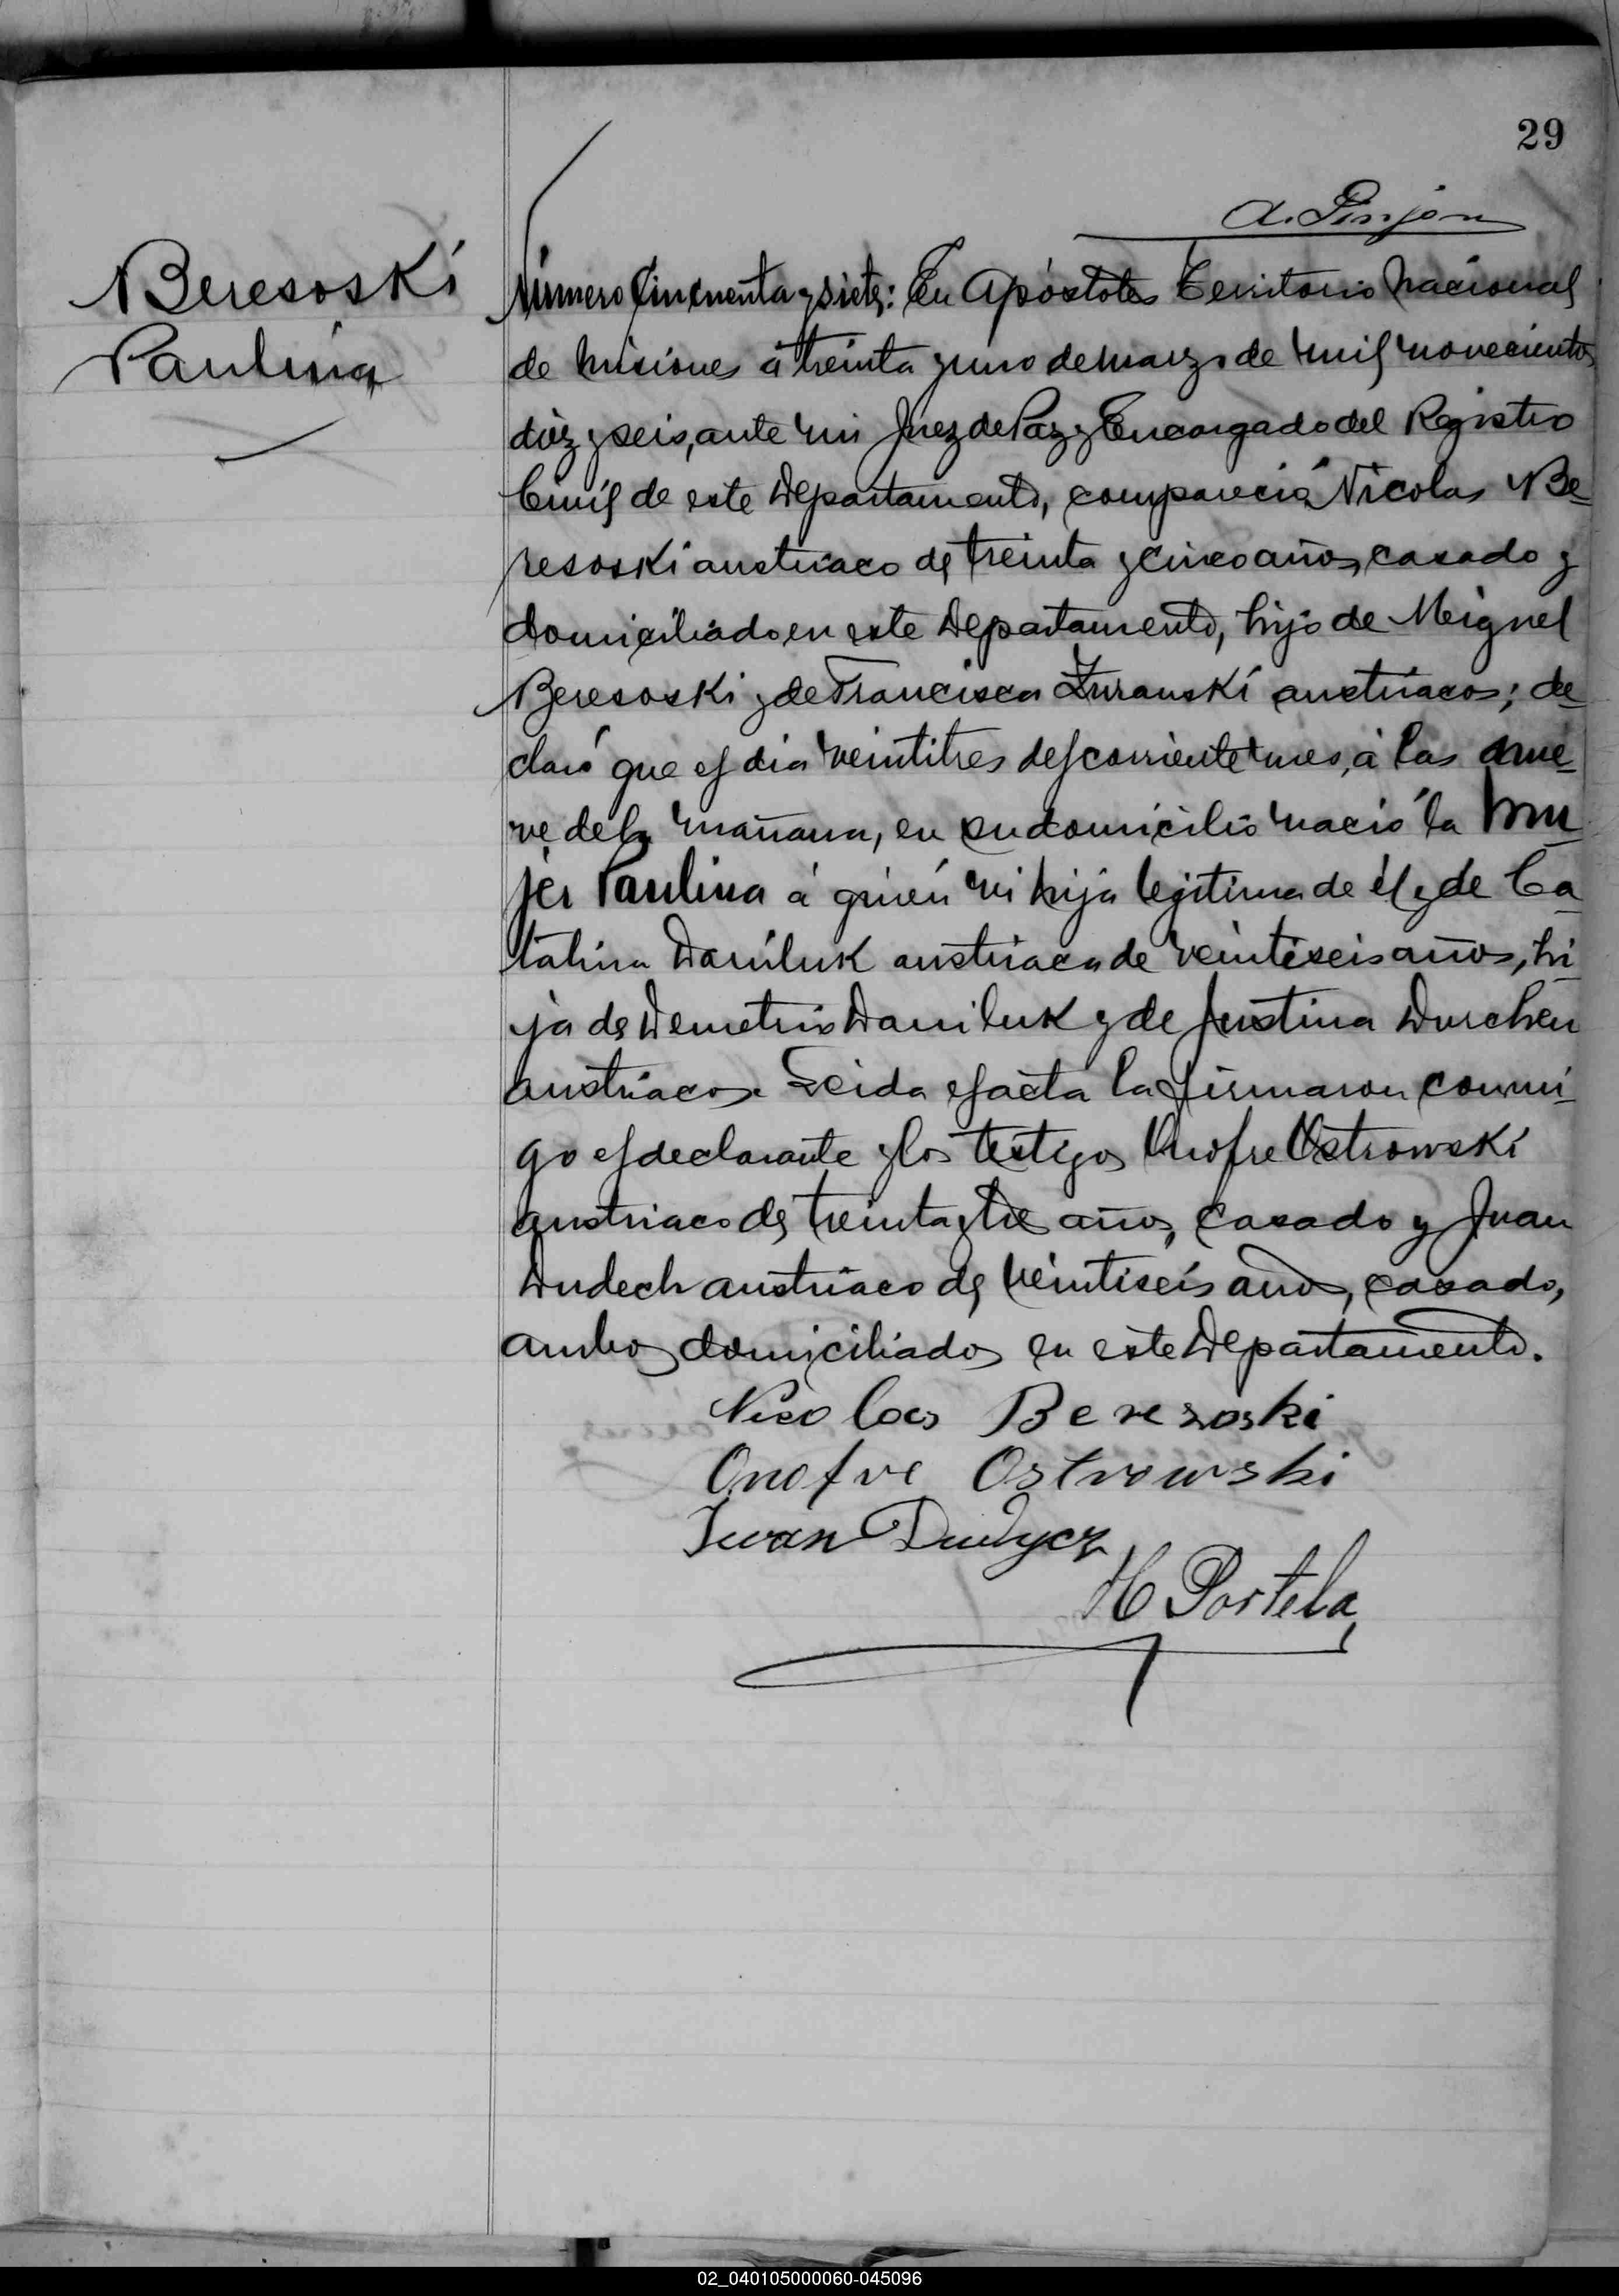 29
Beresoski
Paulina
Número Cincuenta y siete: En Apóstoles Territorio Nacional
de Misiones á treinta y uno de marzo de mil novecientos
diez y seis, ante mi Juez de Paz y Encargado del Registro
Civil de este Departamento, compareció Nicolas Be-
resoski austriaco de treinta y cinco años, casado y
domiciliado en este Departamento, hijo de Miguel
Beresoski y de Francisca Zuranski austriacos; de-
claró que el dia veintitres del corriente mes, á las nue-
ve de la mañana, en su domicilio nació la mu-
jer Paulina á quien vi hija legitima de él y de Ca-
talina Daniluk austriaca de veintiseis años, hi-
ja de Demetrio Daniluk y de Justina Durchen
austriacos. Leida el acta la firmaron conmi-
go el declarante y los testigos Onofre Ostrowski
austriaco de treinta y tre años, casado y Juan
Dudech austriaco de veintiseis años, casado,
ambos domiciliados en este Departamento.
Nicolas Beresoski
Onofre Ostrowski
Iwan Dudycz
H Portela
02_040105000060-045096